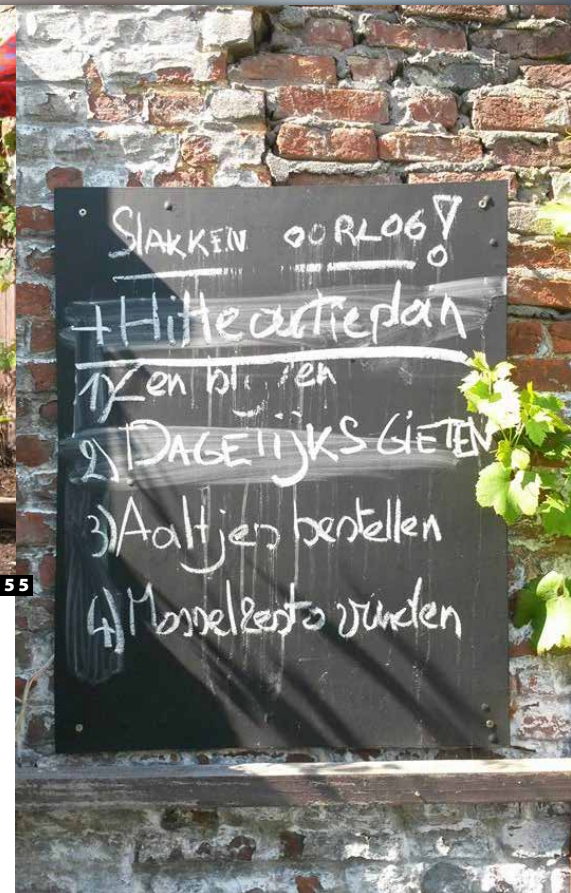 SLAKKEN OORLOG!
+ Hitteactieplan
1) Zen bl en
2) DAGELIJKS GIETEN
3) Aaltjes bestellen
4) vinden
55